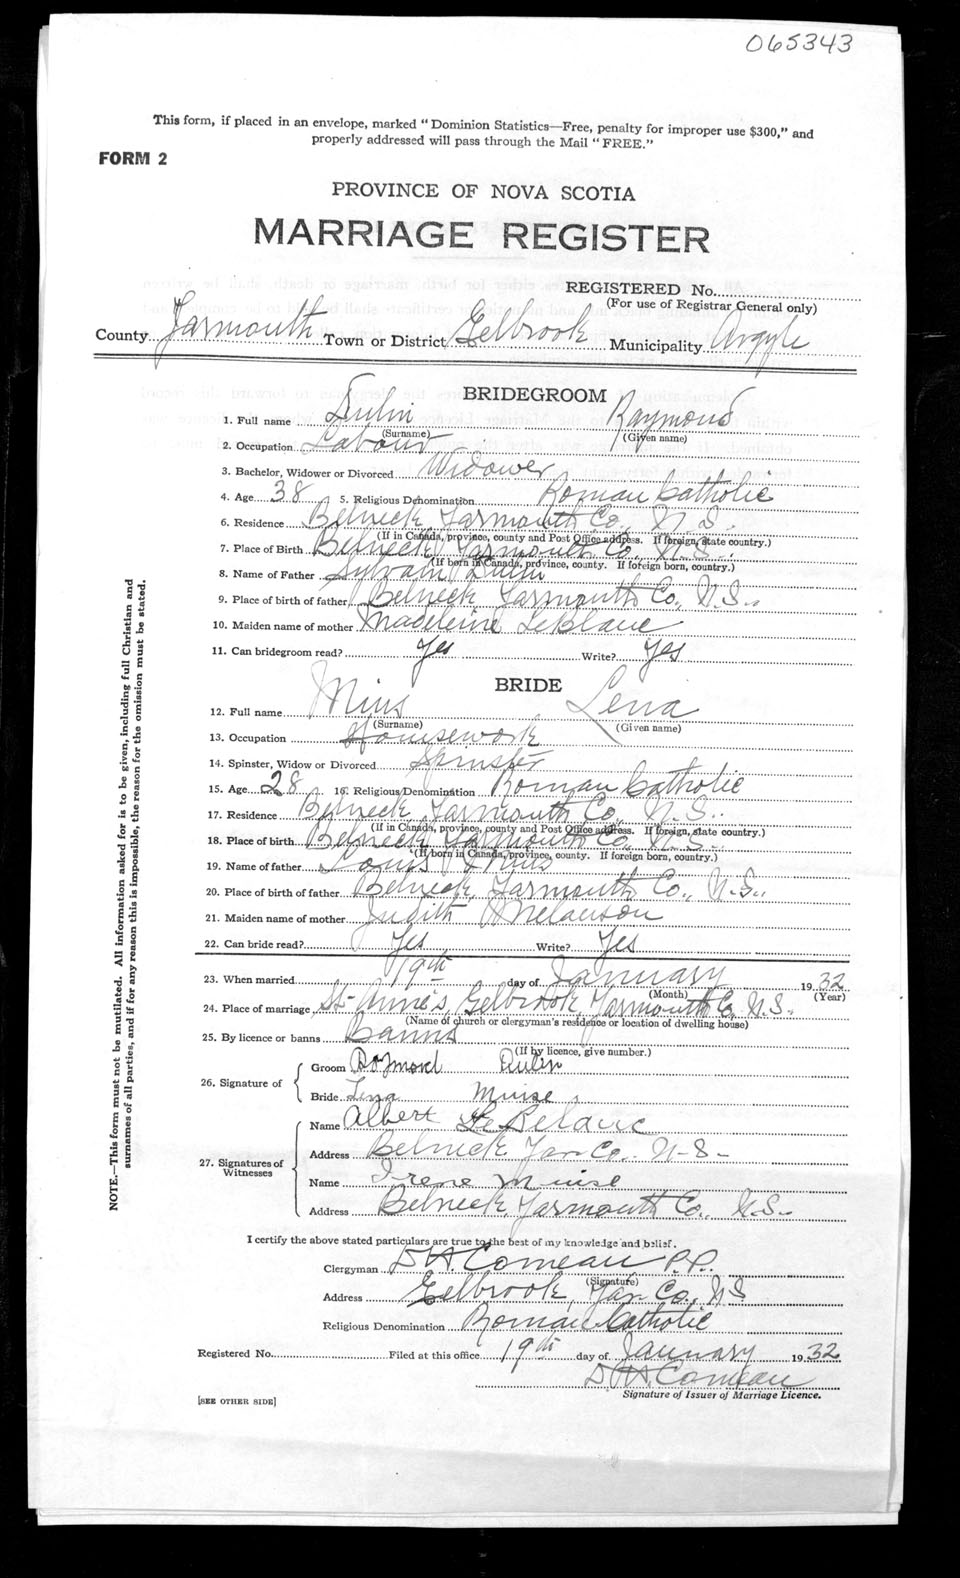 065343
This form, if placed in an envelope, marked "Dominion Statistics—Free, penalty for improper use $300," and
properly addressed will pass through the Mail "FREE."
FORM 2
PROVINCE OF NOVA SCOTIA
MARRIAGE REGISTER
REGISTERED No.
(For use of Registrar General only)
County Yarmouth Town or District Eelbrook Municipality Argyle
BRIDEGROOM
1. Full name Dulin Raymond
(Surname) (Given name)
2. Occupation Labour
3. Bachelor, Widower or Divorced Widower
4. Age 38 5. Religious Denomination Roman Catholic
6. Residence Belneck, Yarmouth Co., N.S.
(If in Canada, province, county and Post Office address. If foreign, state country.)
7. Place of Birth Belneck, Yarmouth Co., N.S.
(If born in Canada, province, county. If foreign born, country.)
8. Name of Father Sylvain Dulin
9. Place of birth of father Belneck, Yarmouth Co., N.S.
10. Maiden name of mother Madeleine LeBlanc
11. Can bridegroom read? Yes Write? Yes
BRIDE
12. Full name Mius Lena
(Surname) (Given name)
13. Occupation Housework
14. Spinster, Widow or Divorced Spinster
15. Age 28 16. Religious Denomination Roman Catholic
17. Residence Belneck, Yarmouth Co., N.S.
(If in Canada, province, county and Post Office address. If foreign, state country.)
18. Place of birth Belneck, Yarmouth Co., N.S.
(If born in Canada, province, county. If foreign born, country.)
19. Name of father Louis Mius
20. Place of birth of father Belneck, Yarmouth Co., N.S.
21. Maiden name of mother Judith Melanson
22. Can bride read? Yes Write? Yes
23. When married 19th day of January 1932
(Month) (Year)
24. Place of marriage St-Anne's, Eelbrook, Yarmouth Co, N.S.
(Name of church or clergyman's residence or location of dwelling house)
25. By licence or banns Banns
(If by licence, give number.)
26. Signature of
Groom Raymond Dulin
Bride Lena Muise
27. Signatures of Witnesses
Name Albert Le Belanc
Address Belneck Yar Co. N-S-
Name Irene Muise
Address Belneck, Yarmouth Co., N.S.
I certify the above stated particulars are true to the best of my knowledge and belief.
Clergyman D H Comeau P.P.
(Signature)
Address Eelbrook, Yar Co., N.S.
Religious Denomination Roman Catholic
Registered No. Filed at this office 19th day of January 1932
D. H. Comeau
Signature of Issuer of Marriage Licence.
[SEE OTHER SIDE]
NOTE.—This form must not be mutilated. All information asked for is to be given, including full Christian and
surnames of all parties, and if for any reason this is impossible, the reason for the omission must be stated.